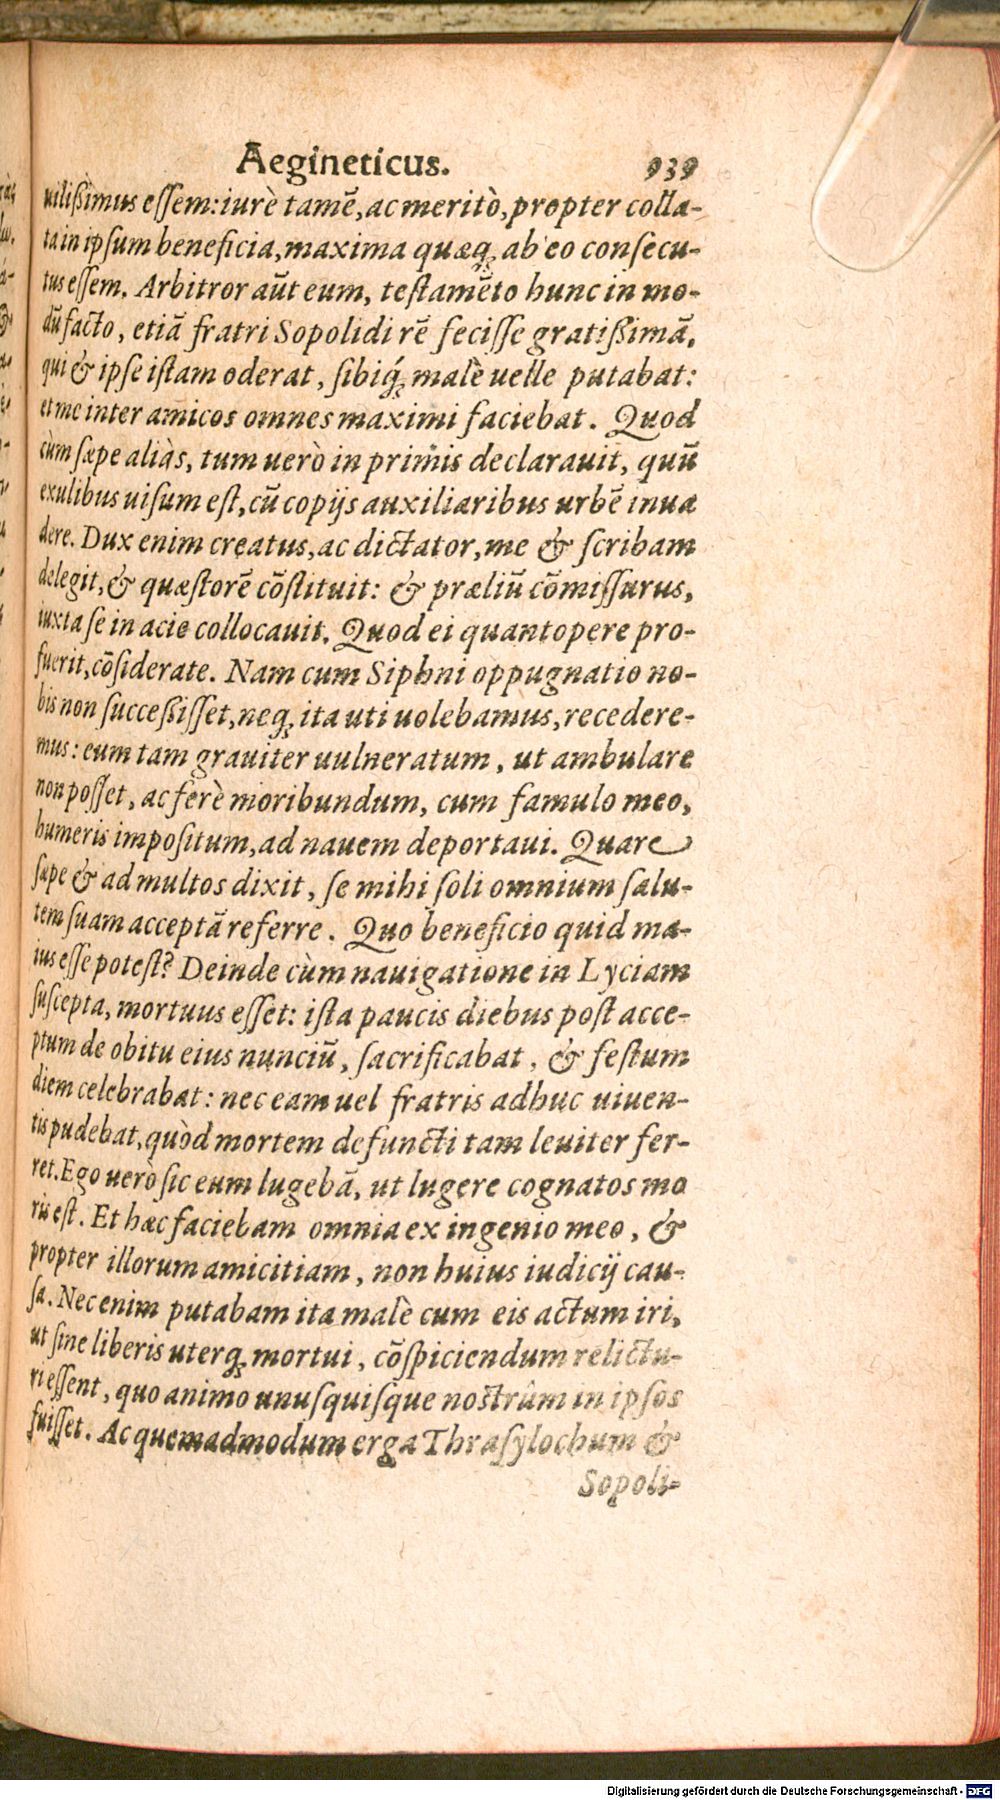 Aegineticus. 939
uilißimus eſſem: iurè tamē, ac meritò, propter colla-
ta in ipſum beneficia, maxima quæq; ab eo conſecu-
tus eſſem. Arbitror aūt eum, teſtamēto hunc in mo-
dū facto, etiā fratri Sopolidi rē feciſſe gratißimā,
qui & ipſe iſtam oderat, ſibiq́; malè uelle putabat:
et me inter amicos omnes maximi faciebat. Quod
cùm ſæpe aliàs, tum uerò in primis declarauit, quū
exulibus uiſum eſt, cū copijs auxiliaribus urbē inua
dere. Dux enim creatus, ac dictator, me & ſcribam
delegit, & quæſtorē cōſtituit: & præliū cōmiſſurus,
iuxta ſe in acie collocauit. Quod ei quantopere pro-
fuerit, cōſiderate. Nam cum Siphni oppugnatio no-
bis non ſucceßiſſet, neq; ita uti uolebamus, recedere-
mus: eum tam grauiter uulneratum, ut ambulare
non poſſet, ac ferè moribundum, cum famulo meo,
humeris impoſitum, ad nauem deportaui. Quare
ſæpe & ad multos dixit, ſe mihi ſoli omnium ſalu-
tem ſuam acceptā referre. Quo beneficio quid ma-
ius eſſe poteſt? Deinde cùm nauigatione in Lyciam
ſuſcepta, mortuus eſſet: iſta paucis diebus poſt acce-
ptum de obitu eius nunciū, ſacrificabat, & feſtum
diem celebrabat: nec eam uel fratris adhuc uiuen-
tis pudebat, quòd mortem defuncti tam leuiter fer-
ret. Ego uerò ſic eum lugebā, ut lugere cognatos mo
ris eſt. Et hæc faciebam omnia ex ingenio meo, &
propter illorum amicitiam, non huius iudicij cau-
ſa. Nec enim putabam ita malè cum eis actum iri,
ut ſine liberis uterq; mortui, cōſpiciendum relictu-
ri eſſent, quo animo unuſquiſque noſtrûm in ipſos
fuiſſet. Ac quemadmodum erga Thraſylochum &
Sopoli-
Digitalisierung gefördert durch die Deutsche Forschungsgemeinschaft - DFG